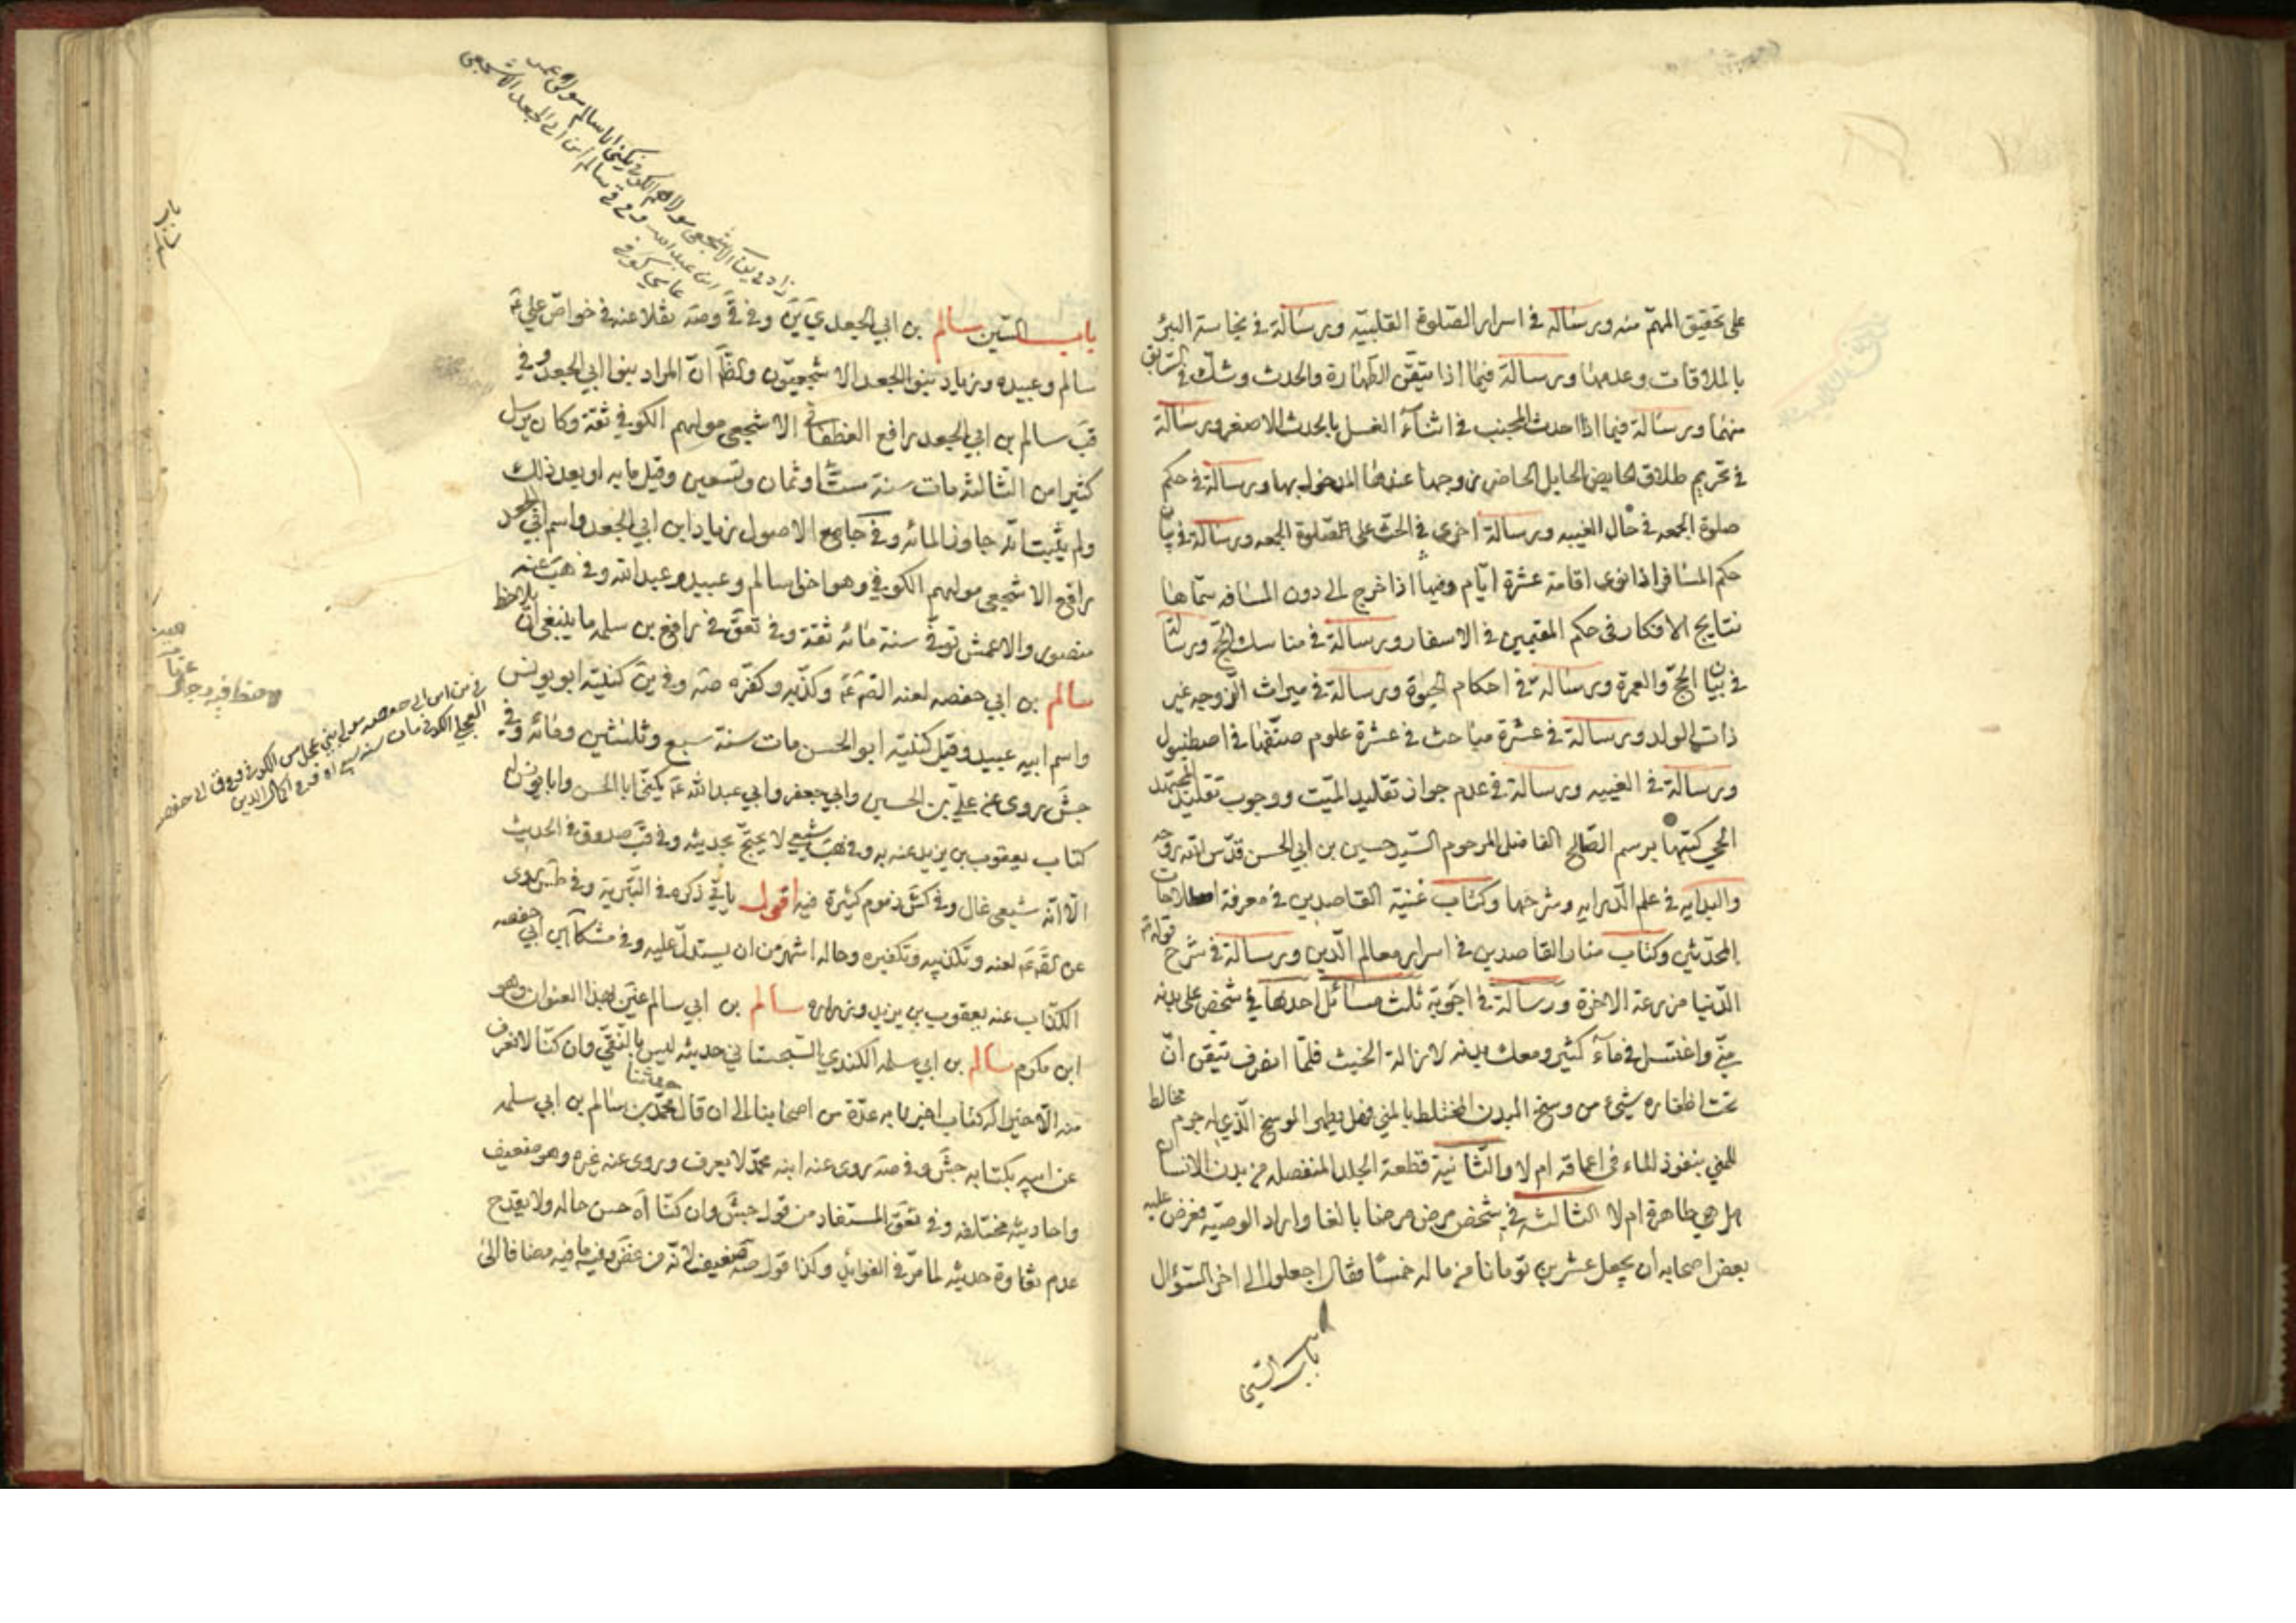 على تحقيق المهمّ منه ورسالة في اسرار الصّلوة القلبيّه ورسالة في نجاسة البئر
بالملاقات وعدمها ورسالة فيما اذا تيقّن الطّهارة والحدث وشك في السّابق
منهما ورسالة فيما اذا احدث المجنب في اثناء الغسل بالحدث الاصغر ورسالة
في تحريم طلاق الحايض الحايل الحاضر زوجها عندها المدخول بها ورسالة في حكم
صلوة الجمعه في حال الغيبه ورسالة اخرى في الحث على الصّلوة الجمعه ورسالة في بيان
حكم المسافر اذا نوى اقامة عشرة ايّام وفيها اذا خرج الى دون المسافه سمّاها
نتايج الافكار في حكم المقيمين في الاسفار ورسالة في مناسك الحج ورسالة
في بيان الحجّ والعمرة ورسالة في احكام الحبوة ورسالة في ميراث الزوجه غير
ذات الولد ورسالة في عشرة مباحث في عشرة علوم صنّفها في اصطنبول
ورسالة في الغيبه ورسالة في عدم جواز تقليد الميّت ووجوب تقليد المجتهد
الحي كتبها برسم الصّالح الفاضل المرحوم السّيد حسين بن أبي الحسن قدّس الله روحه
والبدايه في علم الدّرايه وشرحها وكتاب غنية القاصدين في معرفة اصطلاحات
المحدّثين وكتاب منار القاصدين في اسرار معالم الدّين ورسالة في شرح قوله
الدّنيا مزرعة الاخرة ورسالة في اجوبة ثلث مسائل احدها في شخص على بدنه
منّي واغتسل في ماء كثير ومعك بدنه لازالة الخبث فلمّا انصرف تيقن انّ
تحت اظفاره شيئ من وسخ البدن المختلط بالمني فهل يطهر الوسخ الّذي له جرم مخالط
للمني بنفوذ الماء في اعماقه ام لا والثّانية قطعة الجلد المنفصله من بدن الانسان
هل هي طاهرة ام لا الثالثه في شخص مرض مرضا بالغا واراد الوصيّه فعرض عليه
بعض اصحابه ان يجعل عشرين تومانا من ماله خمسًا فقال اجعلوا الى اخر السّؤال
باب السّين
باب السّين سالم بن ابي الجعد ي ين وفي ق وصه نقلا عنه في خواصّ علي ع
سالم وعبيده وزياد بنو الجعد الاشجعيّون والظّ انّ المراد بنو ابي الجعد وفي
قب سالم بن ابي الجعد رافع الغطفاني الاشجعي مولهم الكوفي ثقة وكان يرسل
كثيرا من الثّالثه مات سنة ست او ثمان وتسعين وقيل مايه او بعد ذلك
ولم يثبت انّه جاوز المائه وفي جامع الاصول زياد ابن ابي الجعد واسم ابي الجعد
رافع الاشجعي مولهم الكوفي وهو اخو سالم وعبيد وعبد الله وفي هب عنه
منصور والاعمش توفّي سنة مائه ثقة وفي تعق في رافع بن سلمه ما ينبغي ان يلاحظ
سالم بن ابي حفصه لعنه الصّ ع وكذّبه وكفّره صه وفي ين كنيته ابو يونس
واسم ابيه عبيد وقيل كنيته ابو الحسن مات سنة سبع وثلثين ومائه وفي
جش روى عن علي بن الحسين وابي جعفر وابي عبد الله ع يكنّى ابا الحسن وابا يونس له
كتاب يعقوب بن يزيد عنه به وفي هب شيعي لا يحتجّ بحديثه وفي قب صدوق في الحديث
الّا انّه شيعي غال وفي كش ذموم كثيرة فيه اقول ياتي ذكره في البتريه وفي طس روى
عن لعنه وتكذيبه وتكفيره وحاله اشهر من ان يستدلّ عليه وفي مشكا ابن ابي حفصه
الكذاب عنه يعقوب بن يزيد وزراره سالم بن ابي سالم عنين بهذا العنوان وهو
ابن مكرم سالم بن ابي سلمه الكندي السّجستاني حديثه ليس بالنّقي وان كنّا لا نعرف
منه الّا خيرا له كتاب اخبرنا به عدّة من اصحابنا الى ان قال حدّثنا محمّد بن سالم بن ابي سلمه
عن ابيه بكتابه جش وفي صه روى عنه ابنه محمّد لا يعرف وروى عنه غيره وهو ضعيف
واحاديثه مختلفه وفي تعق المستفاد من قول جش وان كنّا اه حسن حاله ولا يقدح
عدم نقاوة حديثه لما مرّ في الفوائد وكذا قول صه ضعيف لانّه من غض وفيه ما فيه مضافا الى